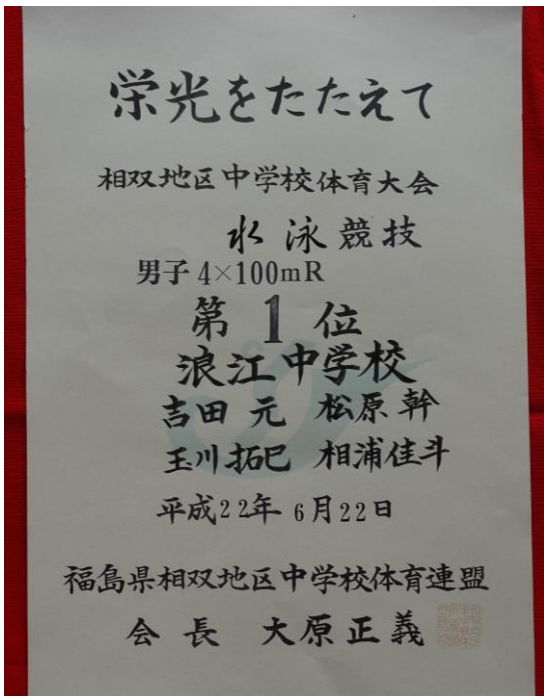 栄光をたたえて
相双地区中学校体育大会
水泳競技
男子4×100mR
第1位
浪江中学校
吉田元 松原幹
玉川拓巳 相浦佳斗
平成22年 6月22日
福島県相双地区中学校体育連盟
会長 大原正義